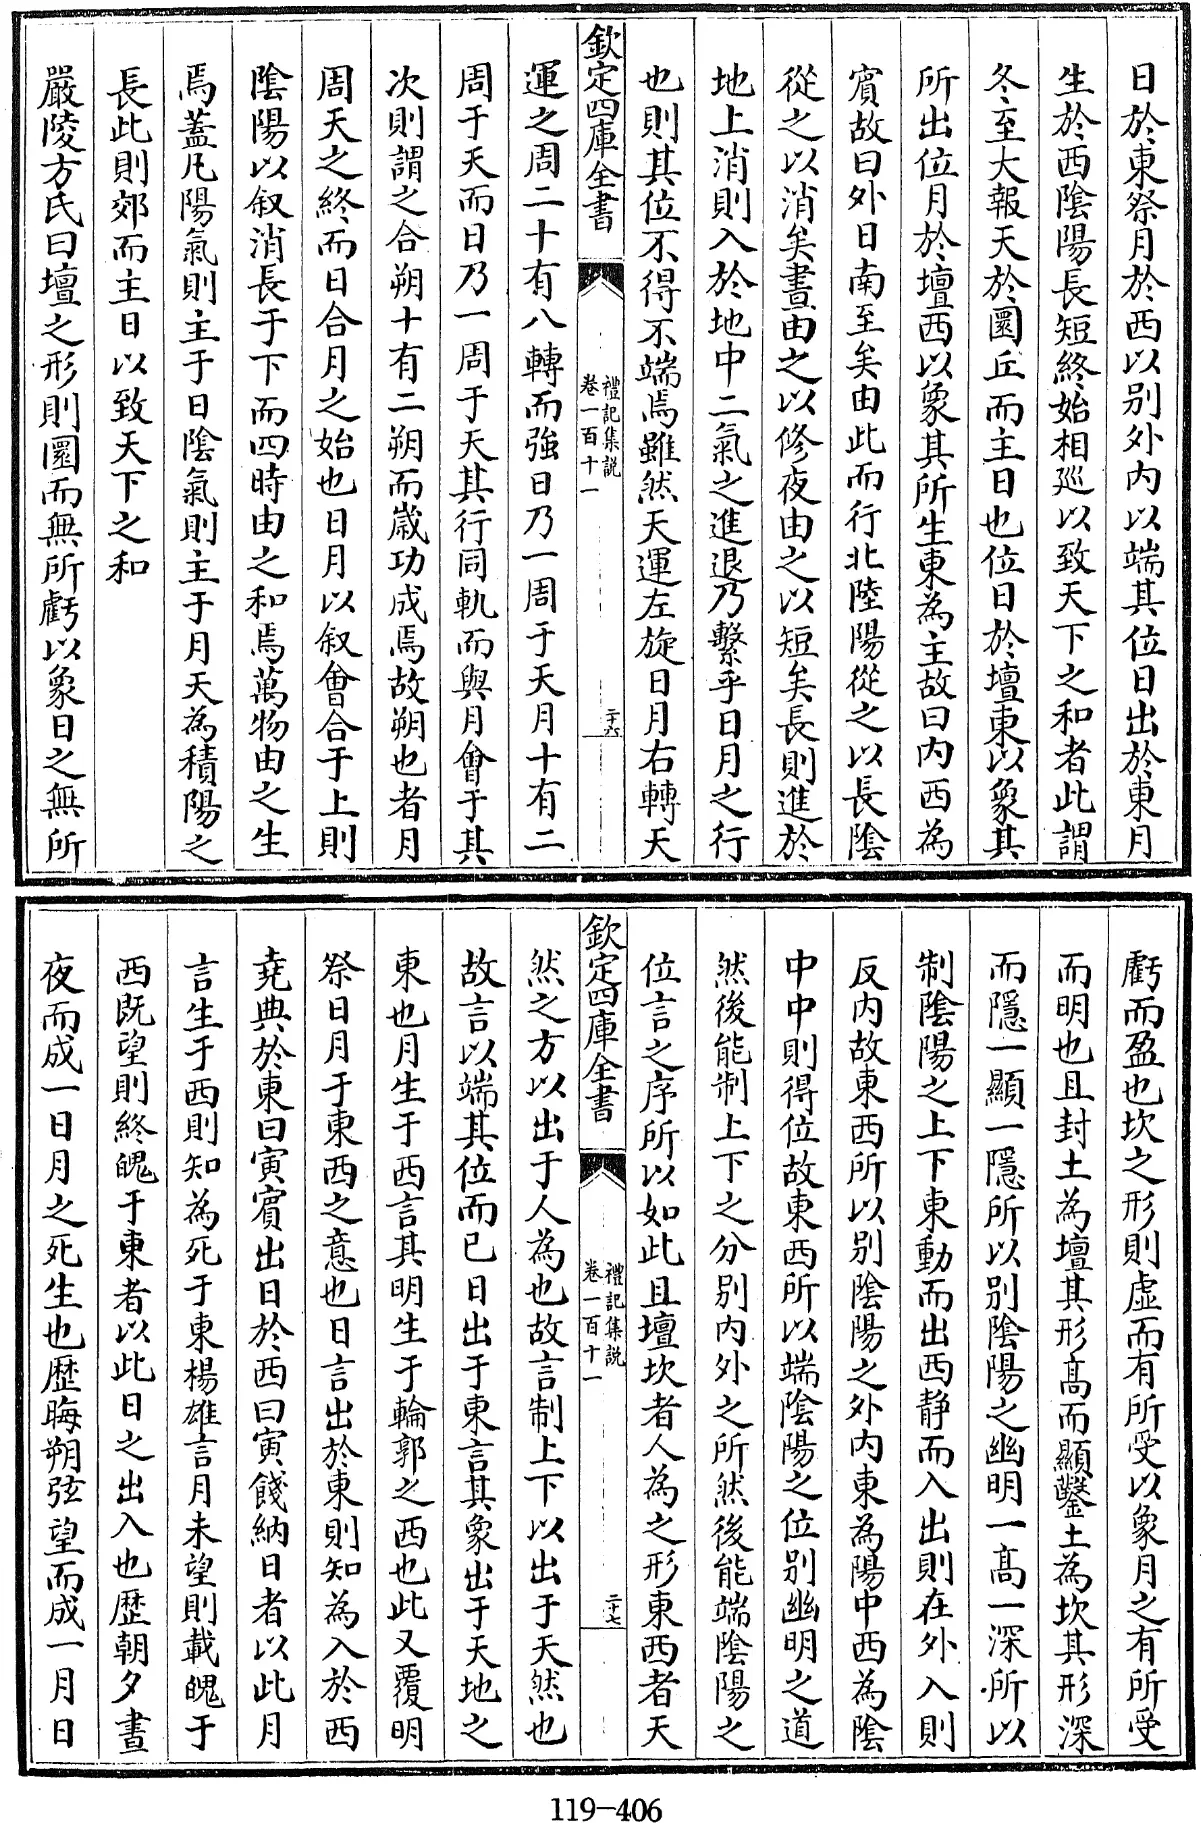 日於東祭月於西以别外内以端其位日出於東月
生於西陰陽長短終始相廵以致天下之和者此謂
冬至大報天於圜丘而主日也位日於壇東以象其
所出位月於壇西以象其所生東為主故曰内西為
賓故曰外日南至矣由此而行北陸陽從之以長陰
從之以消矣晝由之以修夜由之以短矣長則進於
地上消則入於地中二氣之進退乃繫乎日月之行
也則其位不得不端焉雖然天運左旋日月右轉天
欽定四庫全書
禮記集説
卷一百十一
二十六
運之周二十有八轉而強日乃一周于天月十有二
周于天而日乃一周于天其行同軌而與月會于其
次則謂之合朔十有二朔而嵗功成焉故朔也者月
周天之終而日合月之始也日月以叙會合于上則
陰陽以叙消長于下而四時由之和焉萬物由之生
焉蓋凡陽氣則主于日陰氣則主于月天為積陽之
長此則郊而主日以致天下之和
嚴陵方氏曰壇之形則圜而無所虧以象日之無所
虧而盈也坎之形則虚而有所受以象月之有所受
而明也且封土為壇其形髙而顯鑿土為坎其形深
而隱一顯一隱所以别陰陽之幽明一髙一深所以
制陰陽之上下東動而出西静而入出則在外入則
反内故東西所以别陰陽之外内東為陽中西為陰
中中則得位故東西所以端陰陽之位别幽明之道
然後能制上下之分别内外之所然後能端陰陽之
位言之序所以如此且壇坎者人為之形東西者天
欽定四庫全書
禮記集説
卷一百十一
二十七
然之方以出于人為也故言制上下以出于天然也
故言以端其位而已日出于東言其象出于天地之
東也月生于西言其明生于輪郭之西也此又覆明
祭日月于東西之意也日言出於東則知為入於西
堯典於東曰寅賓出日於西曰寅餞納日者以此月
言生于西則知為死于東楊雄言月未望則載魄于
西既望則終魄于東者以此日之出入也歴朝夕晝
夜而成一日月之死生也歴晦朔弦望而成一月日
119-406